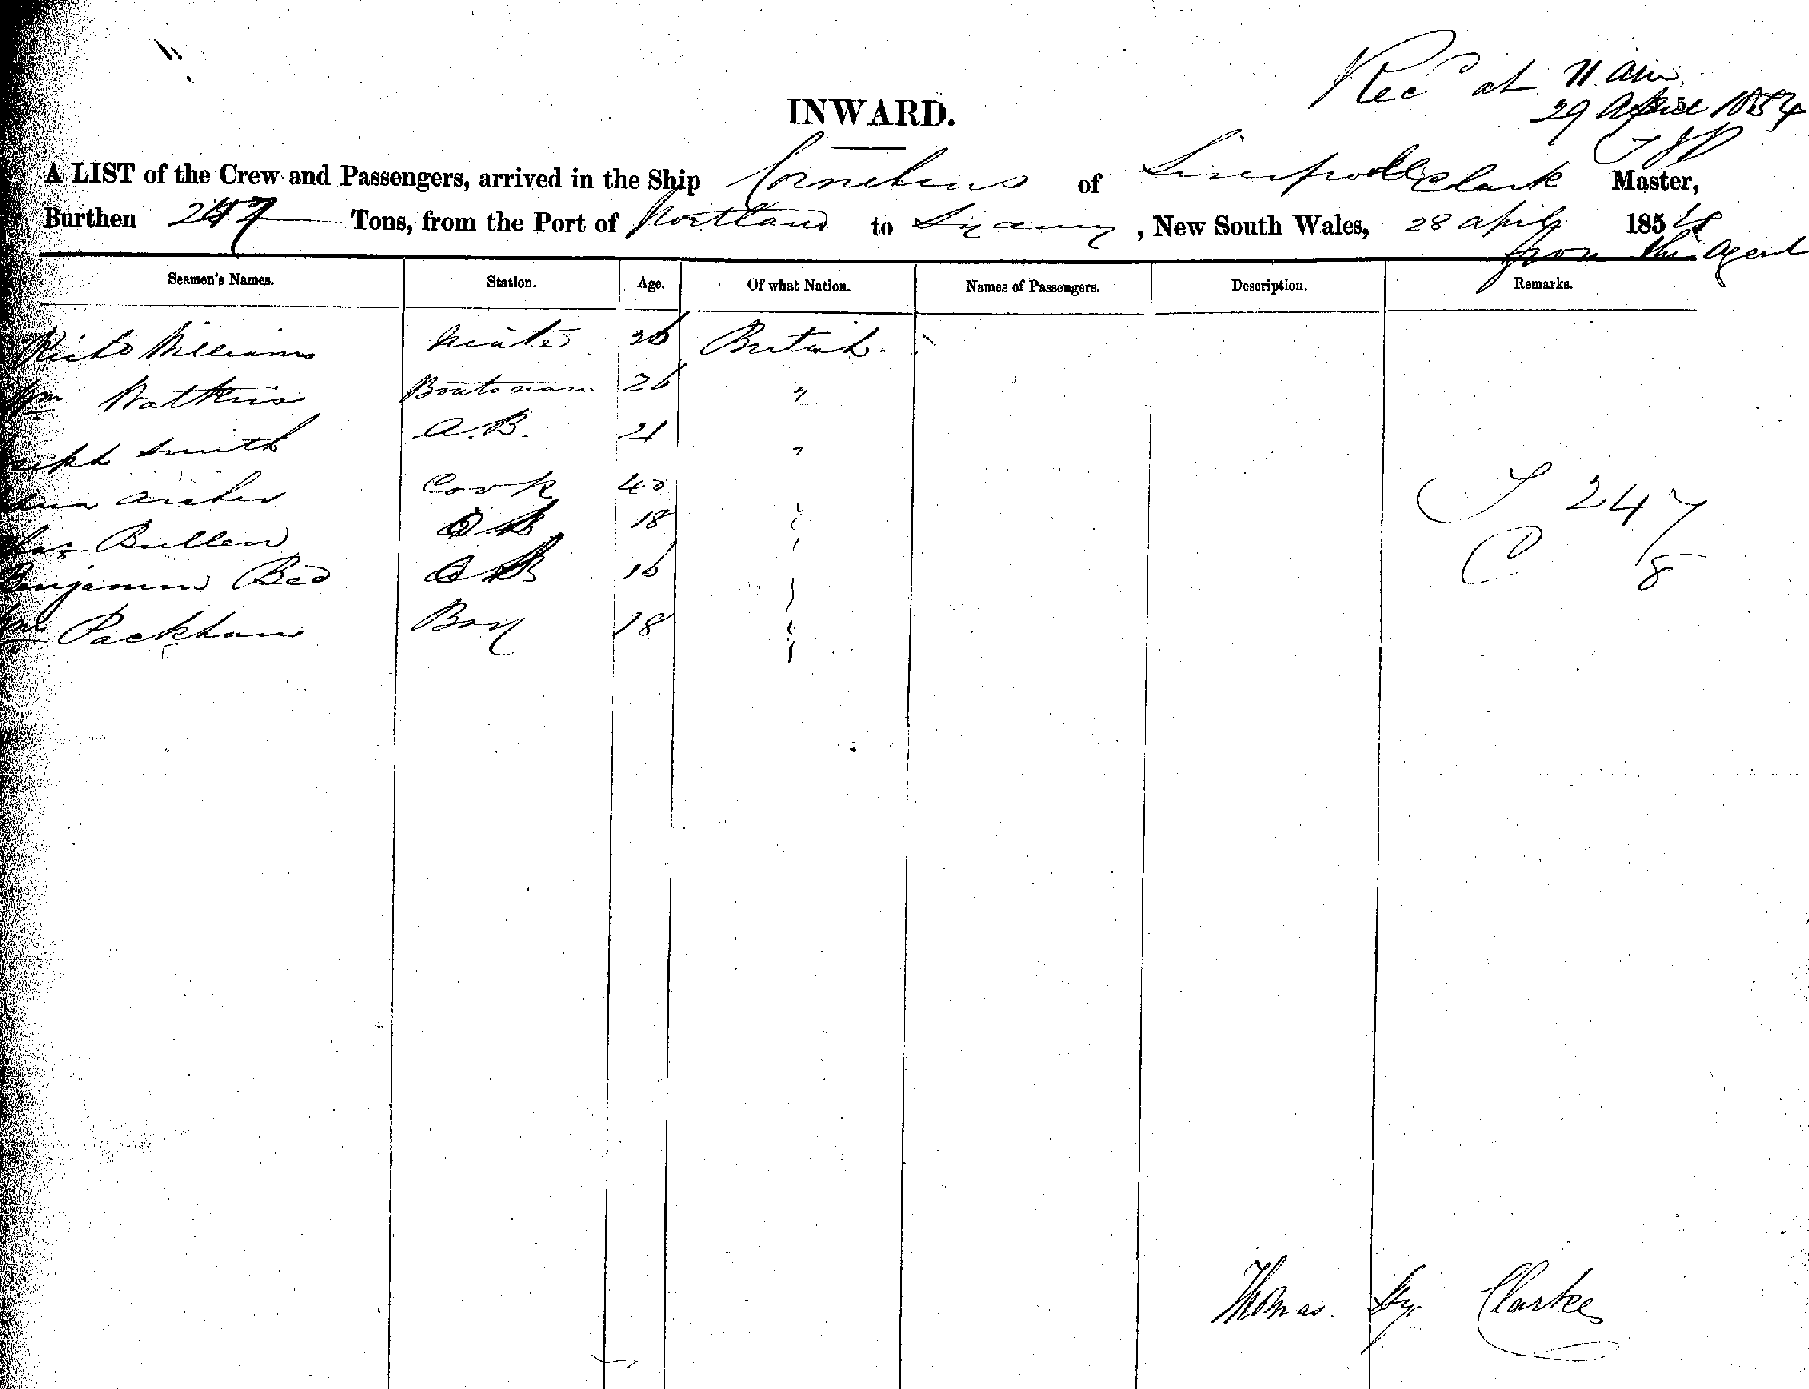 Rec^d at 11 am
29 April 1854
INWARD.
A LIST of the Crew and Passengers, arrived in the Ship Cornelius of Liverpool Clark Master,
Burthen 247 Tons, from the Port of Portland to Sydney, New South Wales, 28 April 1854
from the Agent
Seamen's Names. Station. Age. Of what Nation. Names of Passengers. Description. Remarks.
Rich^d Williams 26 British
Wm Watkins Boatswain 26 "
Smith A.B. 21 "
Archer Cook 40 "
Bullen 18 "
Benjamin 16 "
Wm Packham Boy 18 "
T 247
C 8
Thomas Hy. Clarke